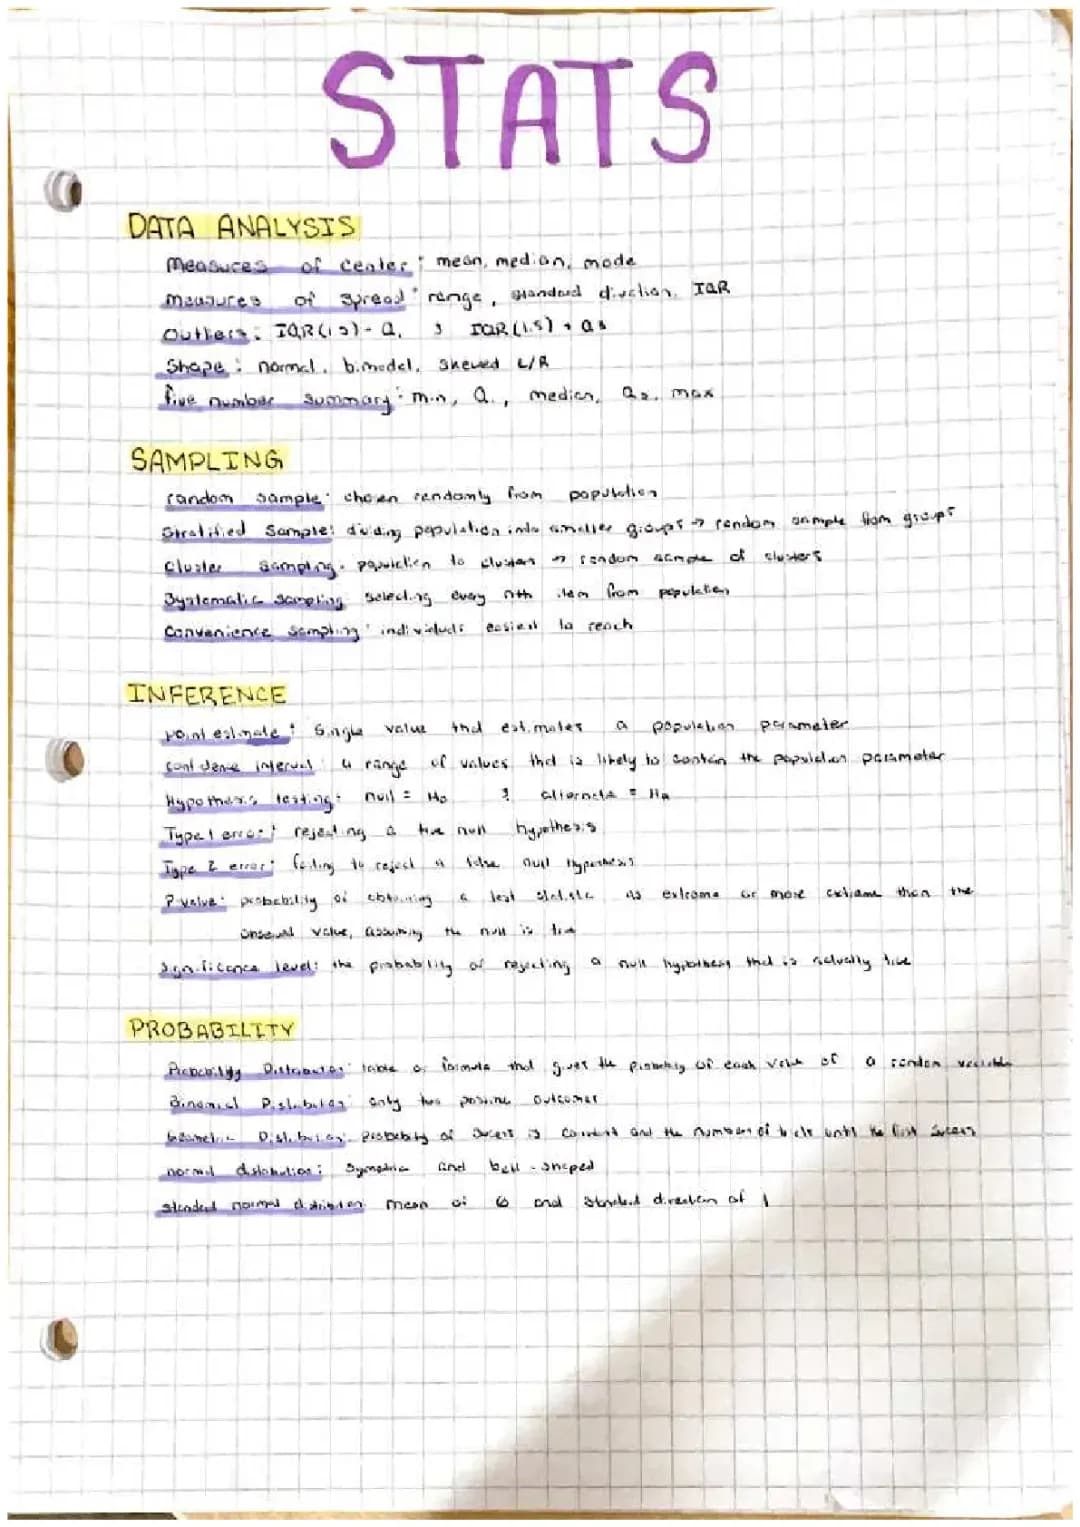 STATS
DATA ANALYSIS
Measures of center: mean, median, mode
measures of spread: range, standard diviation, IQR
Outliers: IQR(1.5) - Q1 & IQR(1.5) + Q3
Shape: normal, bimodel, skewed L/R
five number summary: min, Q1, median, Q3, max
SAMPLING
random sample: chosen randomly from population
Stratified Sample: dividing population into smaller groups → random sample from groups
Cluster sampling: population to clusters → random sample of clusters
Systematic sampling: selecting every nth item from population
Convenience sampling: individuals easiest to reach
INFERENCE
point estimate: Single value that estimates a population parameter
confidence interval: a range of values that is likely to contain the population parameter
Hypothesis testing: null = Ho & alternate = Ha
Type 1 error: rejecting a true null hypothesis
Type 2 error: failing to reject a false null hypothesis
P-value: probability of obtaining a test statistic as extreme or more extreme than the
value, assuming the null is true
Significance level: the probability of rejecting a null hypothesis that is actually true
PROBABILITY
Probability Distribution: table or formula that gives the probability of each value of a random variable
Binomial Distribution: only two possible outcomes
Geometric Distribution: probability of success is constant and the number of trials until the first success
normal distribution: Symmetric and bell-shaped
standard normal distribution: mean of 0 and standard of 1